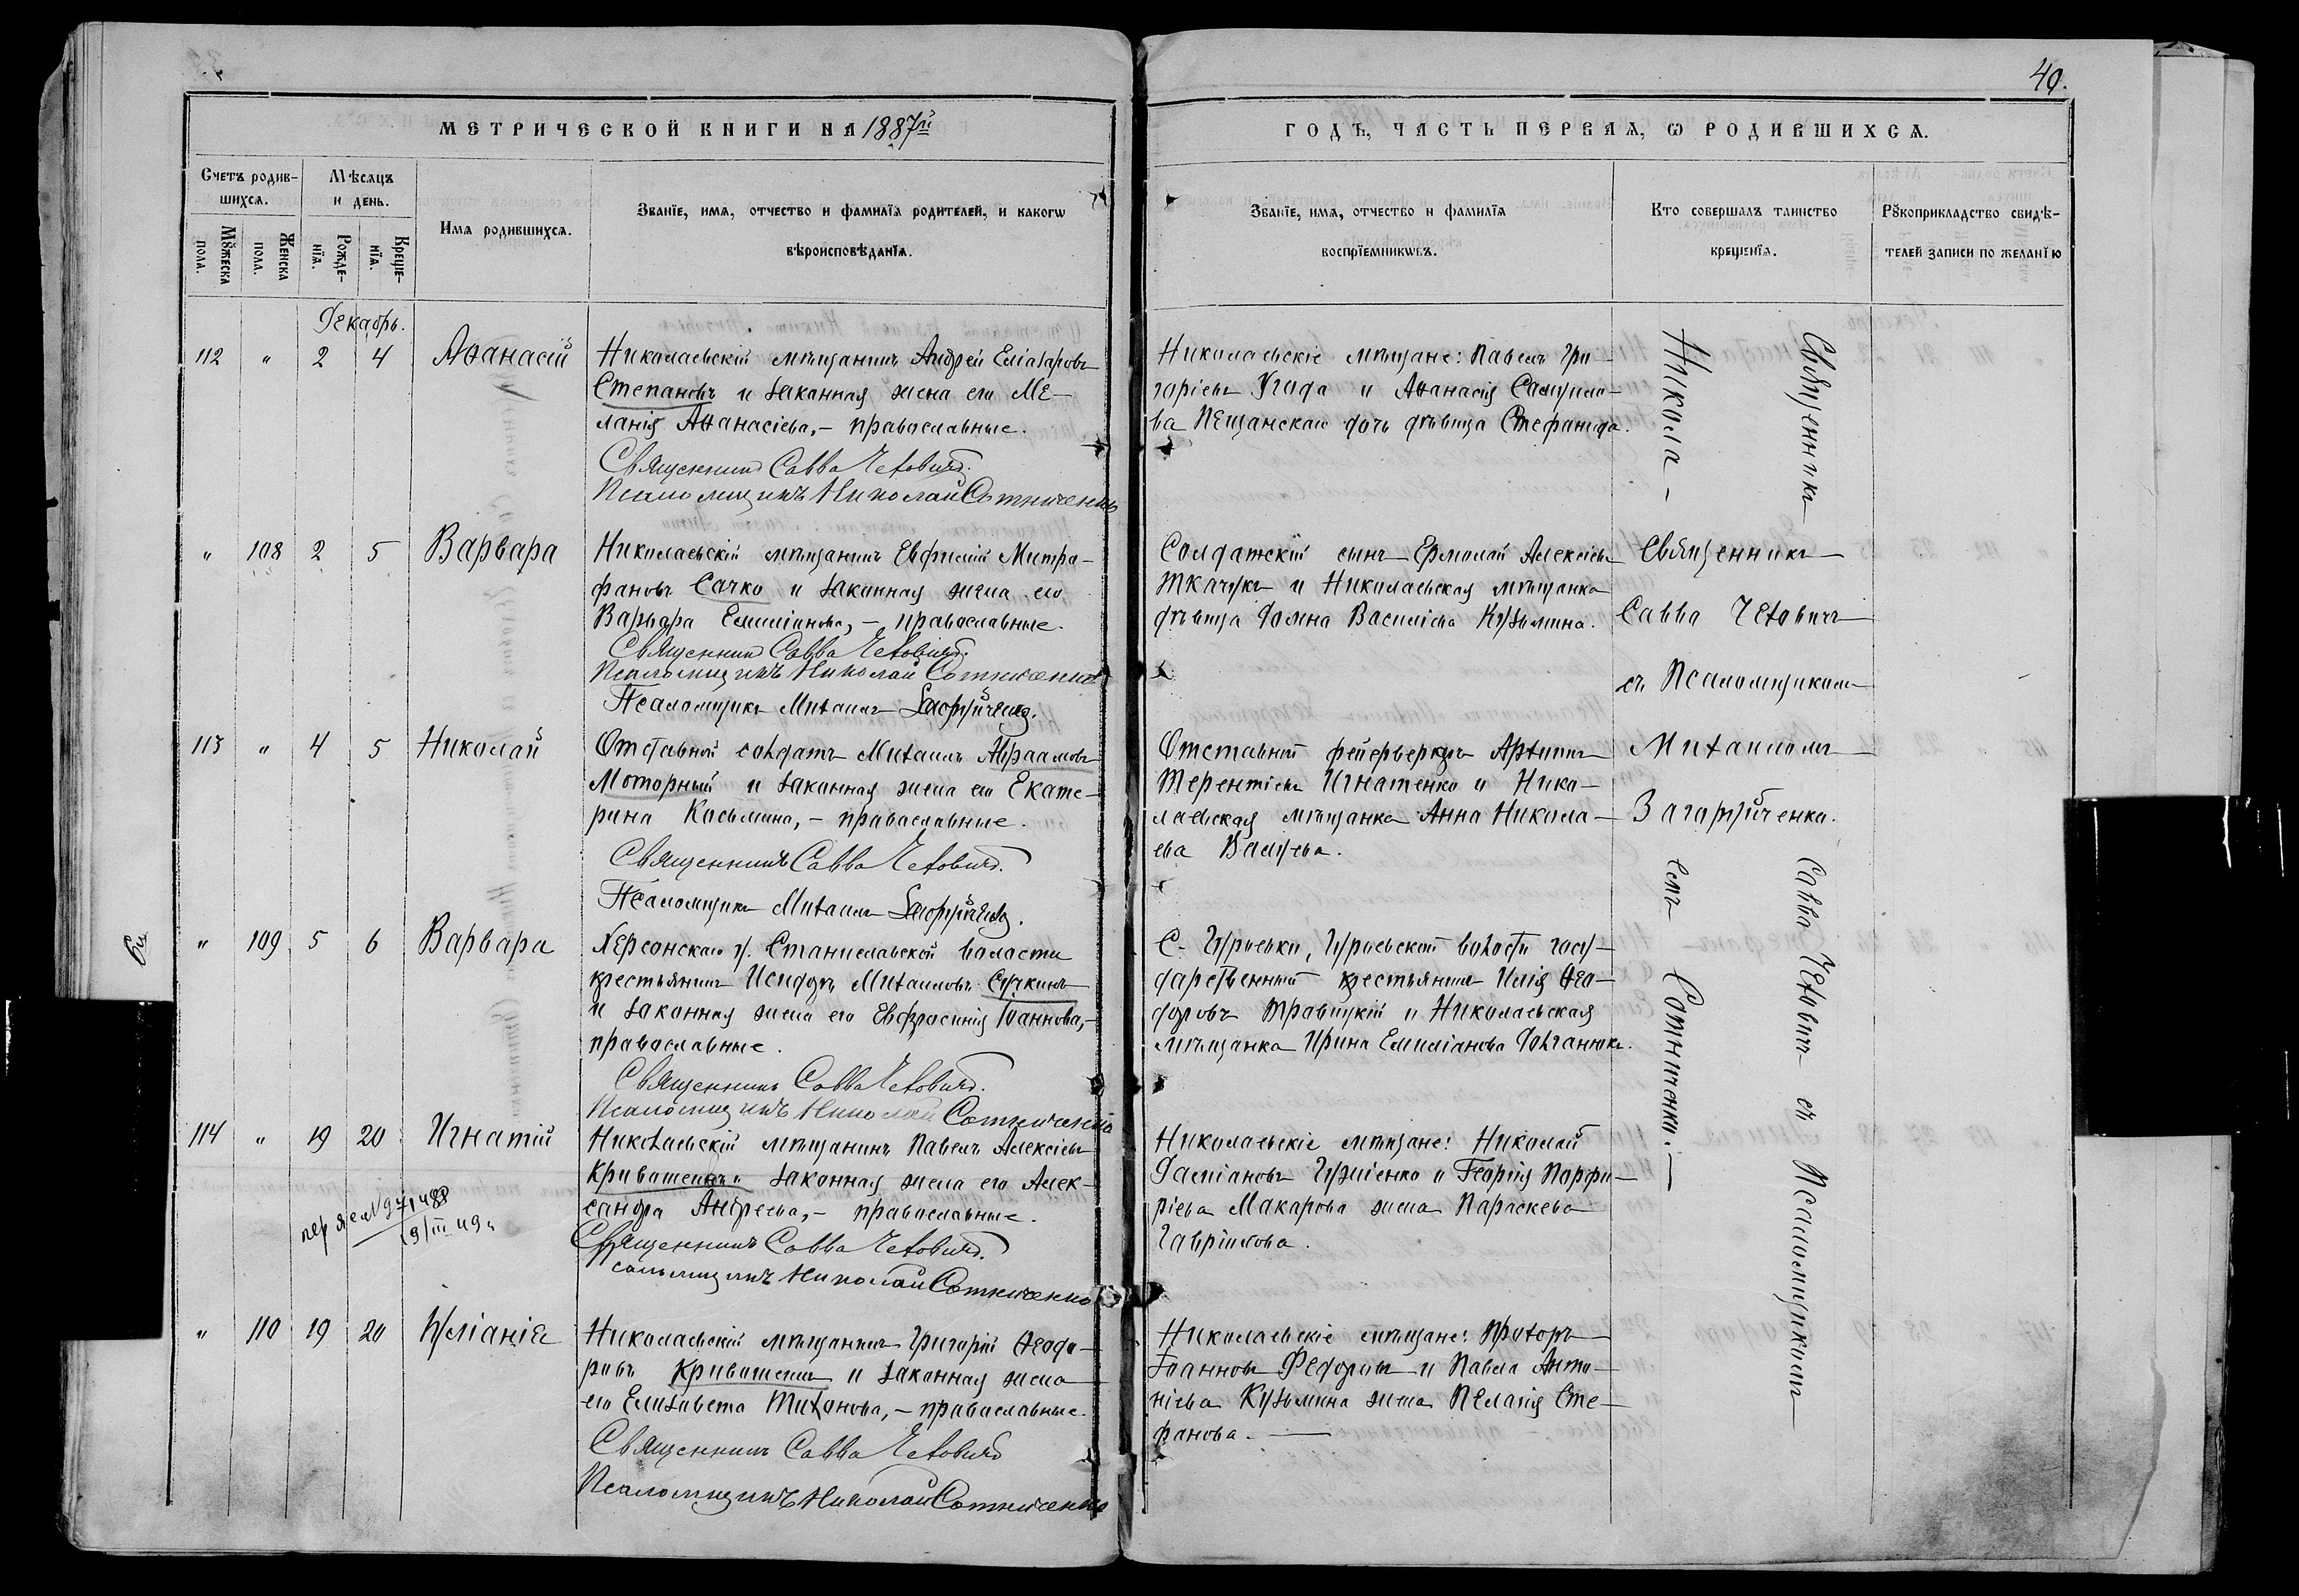 40.
МЕТРИЧЕСКОЙ КНИГИ НА 1887й
ГОДЪ, ЧАСТЬ ПЕРВАЯ, Ѡ РОДИВШИХСЯ.
Счетъ родив-
шихся.
Мѣсяцъ
и день.
Имя родившихся.
Званїе, имя, отчество и фамилїя родителей, и какогѡ
вѣроисповѣданїя.
Званїе, имя, отчество и фамилїя
воспрїемникѡвъ.
Кто совершалъ таинство
крещенїя.
Рꙋкоприкладство свидѣ-
телей записи по желанїю
Мꙋжеска
пола.
Женска
пола.
Рожде-
нїя.
Креще-
нїя.
Декабрь.
112 " 2 4 Аѳанасій
Николаевскій мѣщанинъ Андрей Еліазаровъ
Степановъ и законная жена его Ме-
ланія Аѳанасіева,- православные.
Священникъ Савва Чехович.
Псаломщикъ Николай Сотниченко
Николаевскіе мѣщане: Павелъ Гри-
горіевъ и Аѳанасія Самуило-
ва Пещанскаго дочь дѣвица Стефанида.
" 108 2 5 Варвара
Николаевскій мѣщанинъ Евфимій Митро-
фановъ Сачко и законная жена его
Варвара Емиліанова,- православные.
Священникъ Савва Чехович.
Псаломщикъ Николай Сотниченко
Псаломщикъ Михаилъ
Солдатскій сынъ Ермолай Алексіевъ
Ткачукъ и Николаевская мѣщанка
дѣвица Домна Василіева Кузьмина.
Священникъ
Савва Чеховичъ
съ Псаломщикомъ
113 " 4 5 Николай
Отставной солдатъ Михаилъ Авраамовъ
Моторный и законная жена его Екате-
рина Косьмина,- православные.
Священникъ Савва Чехович.
Псаломщикъ Михаилъ
Отставной фейерверкеръ Архипъ
Терентіевъ Игнатенко и Нико-
лаевская мѣщанка Анна Никола-
ева
Михаиломъ
" 109 5 6 Варвара
Херсонскаго у. Станиславской волости
крестьянинъ Исидоръ Михаиловъ Сучкинъ
и законная жена его Евфросинія Іоаннова,-
православные.
Священникъ Савва Чехович.
Псаломщикъ Николай Сотниченко
С. Гурьевки, Гурьевской волости госу-
дарственный крестьянинъ Илія Ѳео-
доровъ Травицкій и Николаевская
мѣщанка Ирина Емиліанова Долганюкъ.
114 " 19 20 Игнатій
Николаевскій мѣщанинъ Павелъ Алексіевъ
Кривошеинъ и законная жена его Алек-
сандра Андреева,- православные.
Священникъ Савва Чехович.
Псаломщикъ Николай Сотниченко
9/III 49
Николаевскіе мѣщане: Николай
Даміановъ Гуменко и Георгія Порфи-
ріева Макарова жена Параскева
Гавріилова.
" 110 19 20 Іуліанія
Николаевскій мѣщанинъ Григорій Ѳеодо-
ровъ Кривошеинъ и законная жена
его Елизавета Тихонова,- православные.
Священникъ Савва Чехович
Псаломщикъ Николай Сотниченко
Николаевскіе мѣщане: Прохоръ
Іоанновъ Федоровъ и Павла Анто-
ніева Кузьмина жена Пелагія Сте-
фанова.
Священникъ Савва Чеховичъ съ Псаломщикомъ
Никола-
емъ Сотниченко.